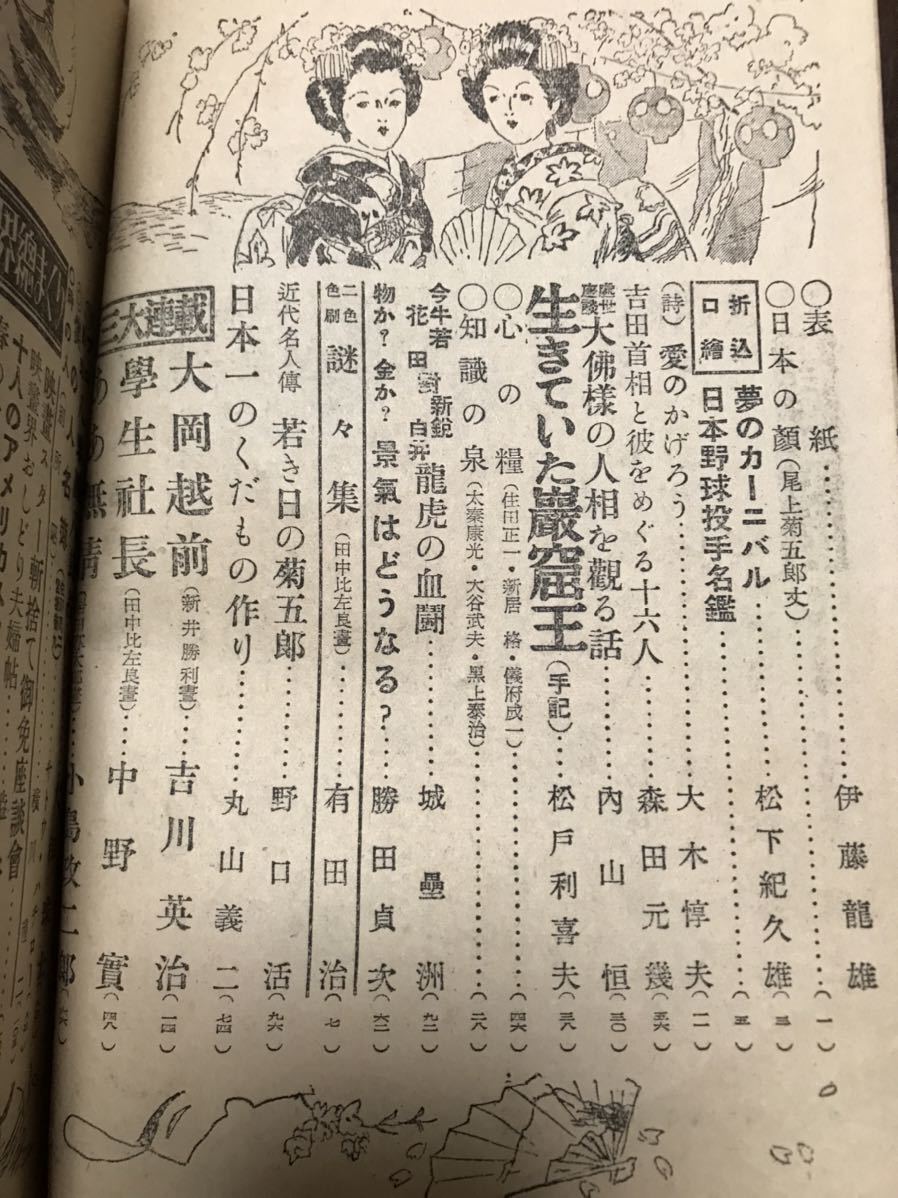 〇表紙……伊藤龍雄(一)
〇日本の顔(尾上菊五郎丈)
折込口繪 夢のカーニバル……松下紀久雄(三)
日本野球投手名鑑……(五)
(詩)愛のかげろう……大木惇夫(一一)
吉田首相と彼をめぐる十六人……森田元幾(五六)
處世座談 大佛様の人相を觀る話……內山恒(三〇)
生きていた巖窟王(手記)……松戶利喜夫(三八)
〇心の糧(住田正一・新居格・儀府成一)……(四六)
〇知識の泉(大秦康光・大谷武夫・黑上泰治)……(二八)
今牛若花田對新銳白井 龍虎の血鬪……城壘洲(九二)
物か?金か?景氣はどうなる?……勝田貞次(六二)
二色色刷 謎々集(田中比左良畫)……有田治(七)
近代名人傳 若き日の菊五郎……野口活(九六)
日本一のくだもの作り……丸山義二(七四)
三大連載
大岡越前(新井勝利畫)……吉川英治(一四)
學生社長(田中比左良畫)……中野實(四八)
あゝ無情……小島政二郎(六)
界總まくり
映畫スター斬捨て御免座談會
映畫界おしどり夫婦帖
十人のアメリカ